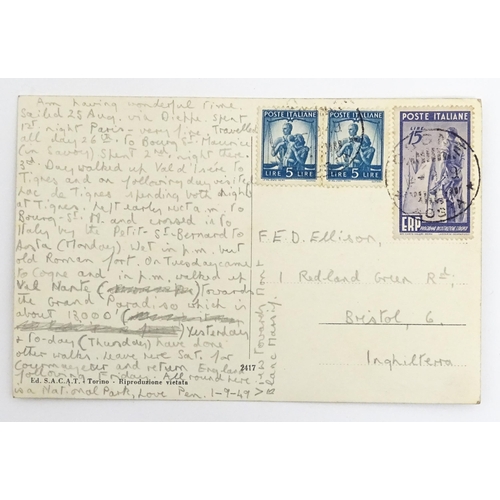 Am having wonderful time.
Sailed 25 Aug. via Dieppe spent
1st. night Paris - very fine, Travelled
all day 26th to Bourg-St. Maurice
(in Savoy) Spent 2nd, night there
3rd. Day walked up Val d'Isère to
Tignes and on following day visited
Lac de Tignes spending both nights
at Tignes. Left early next a.m. to
Bourg-St. M. and crossed into
Italy by the Petit St-Bernard to
Aosta (Monday) Wet in p.m. but
old Roman fort. On Tuesday came
to Cogne and in p.m. walked up
Val Nante towards
the Grand Paradiso which is
about 13,000'
Yesterday
+ to-day (Thursday) have done
other walks. Leave here Sat. for
Courmayeur and return England
following Friday. All round here
is a National Park, Love Pen. 1-9-49
Views towards Mont
Blanc Massif.
POSTE ITALIANE
LIRE 5 LIRE
POSTE ITALIANE
LIRE 5 LIRE
POSTE ITALIANE
LIRE
15
ERP
COGNE
AOSTA
F.E.D. Ellison,
1 Redland Green Rd;
Bristol, 6.
Inghilterra
Ed. S.A.C.A.T. - Torino - Riproduzione vietata
2417